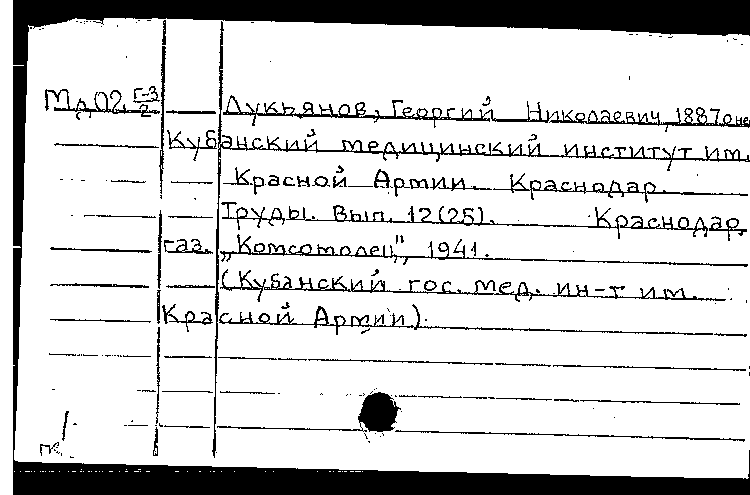 Мд02 Г-3/2 Лукьянов, Георгий Николаевич, 1887
Кубанский медицинский институт им.
Красной Армии. Краснодар.
Труды. Вып. 12(25). Краснодар,
газ. „Комсомолец", 1941.
(Кубанский гос. мед. ин-т им.
Красной Армии).